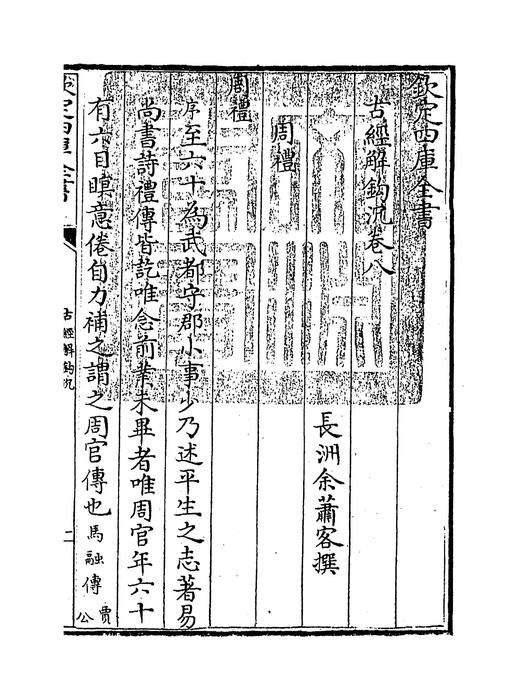 欽定四庫全書
古經解鉤沉卷八
長洲余蕭客撰
周禮
周禮
序至六十為武都守郡小事少乃述平生之志著易
尚書詩禮傳皆訖唯念前業未畢者唯周官年六十
有六目瞑意倦自力補之謂之周官傳也馬融傳賈公
欽定四庫全書
古經解鉤沉
二